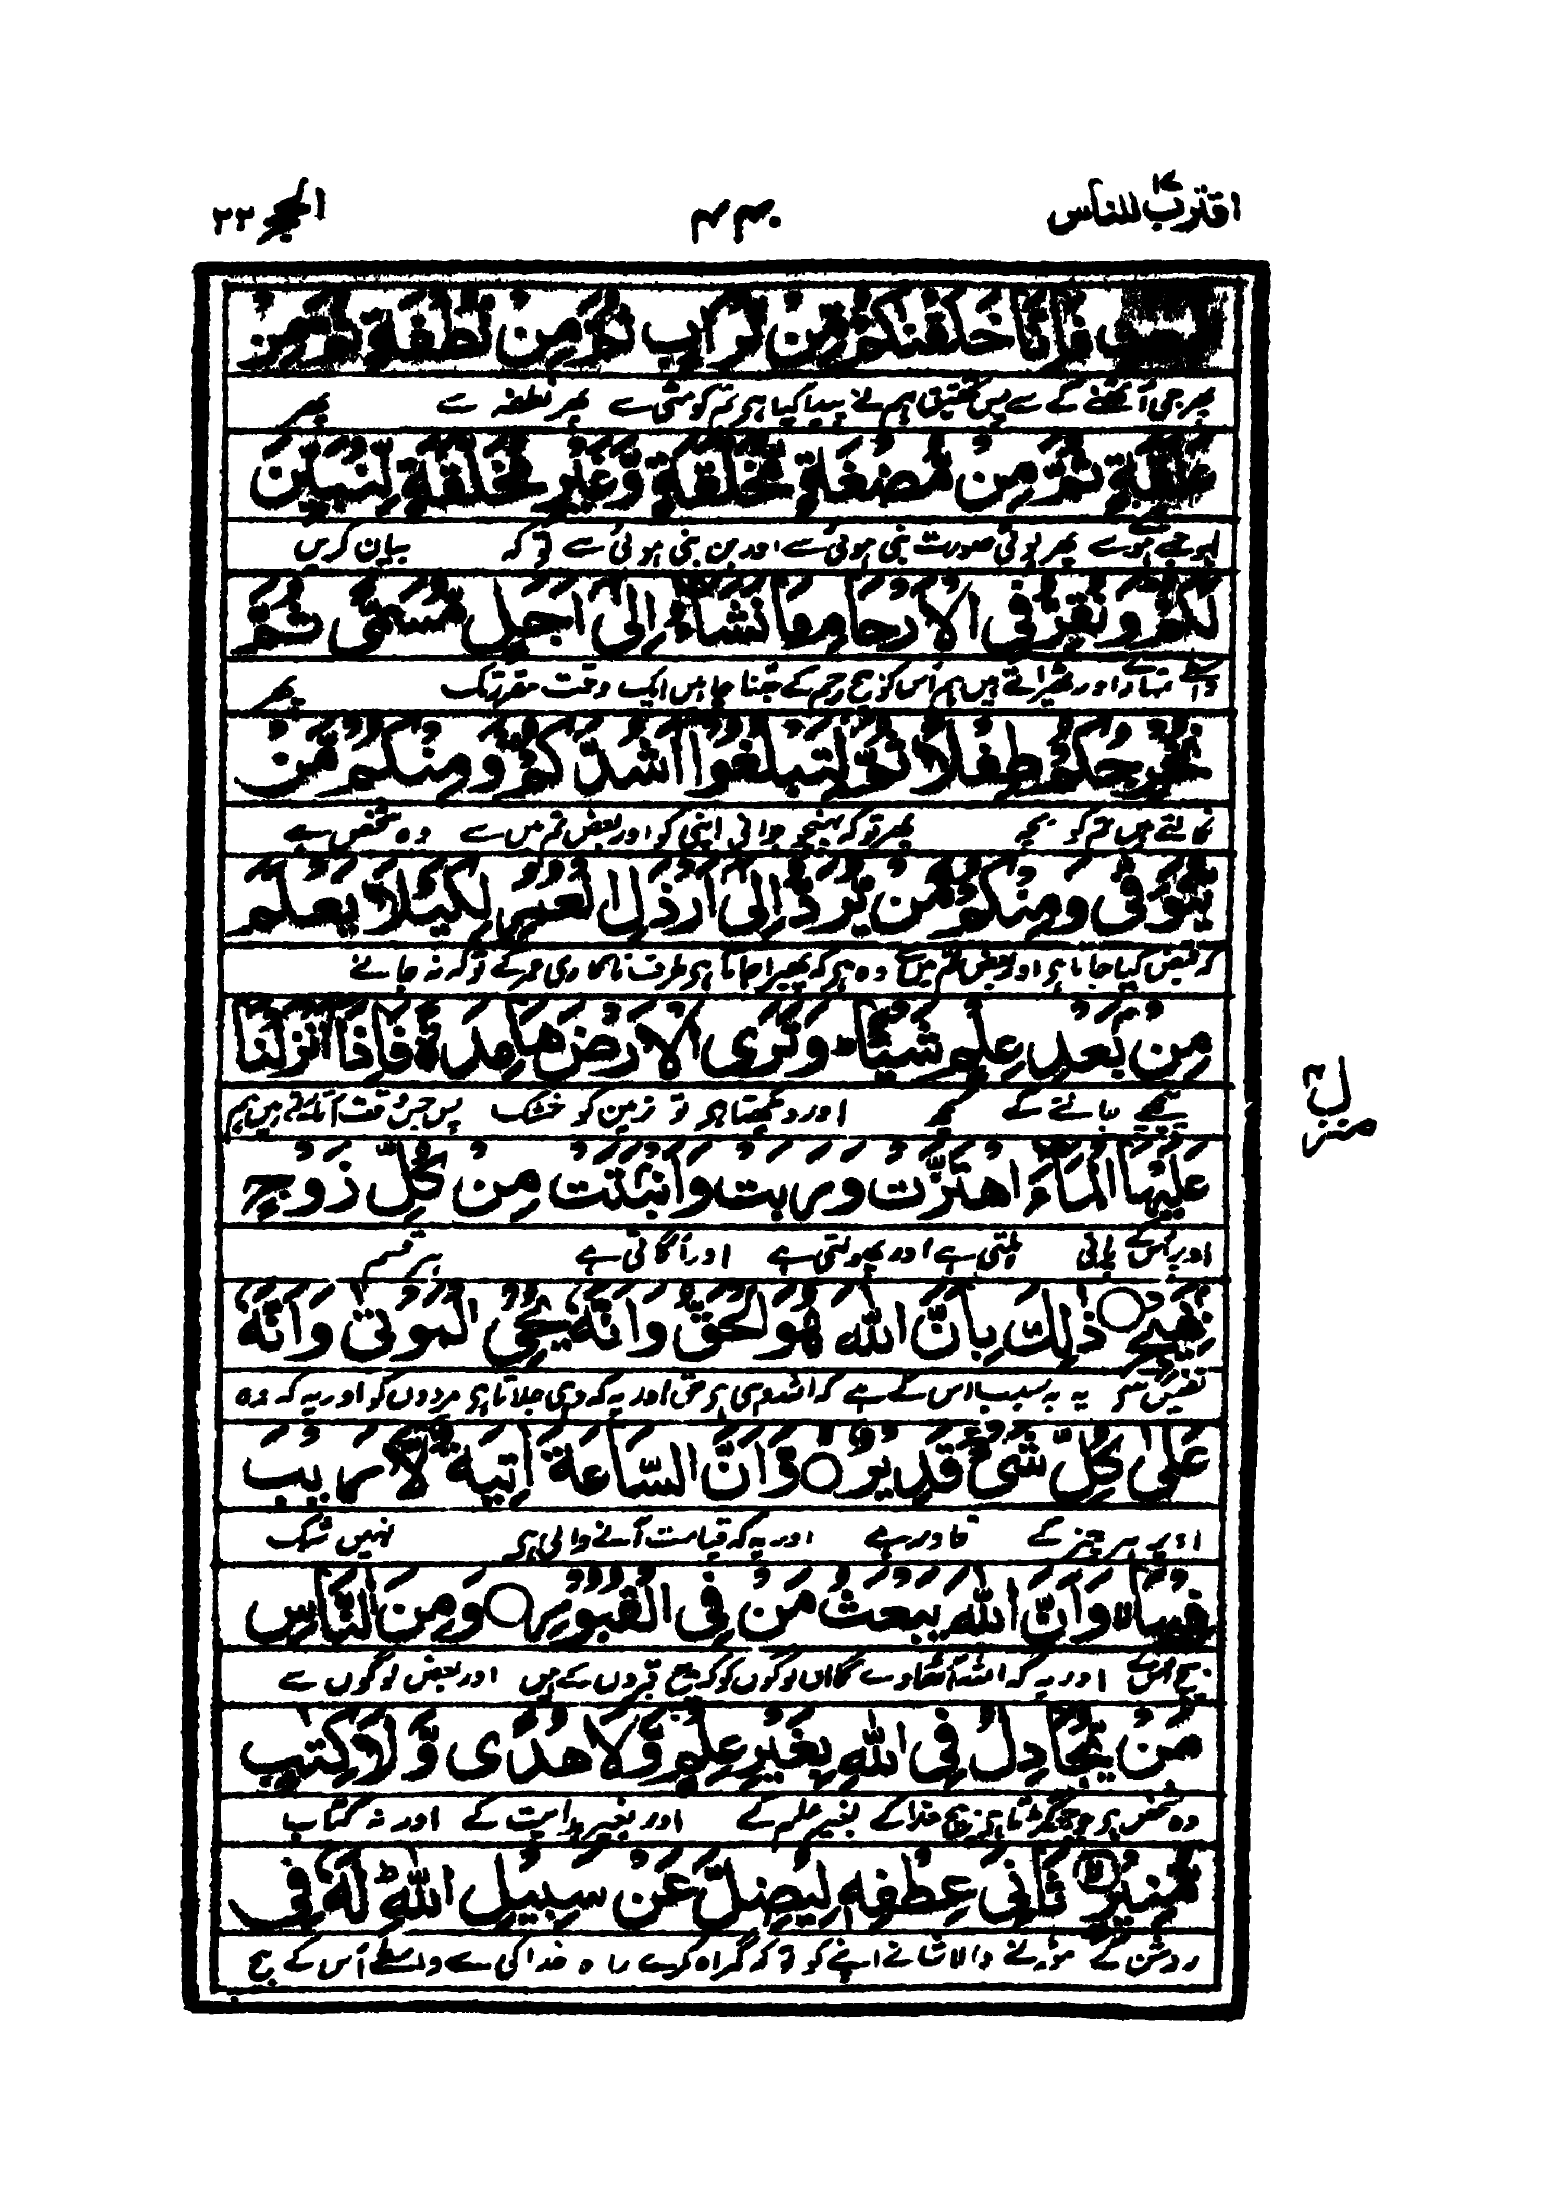 اقترب للناس ١٧
الحج ٢٢
البعث فانا خلقنكم من تراب ثم من نطفة ثم من
پھر جی اٹھنے کے سے پس تحقیق ہم نے پیدا کیا ہی تم کو مٹی سے پھر نطفہ سے پھر
علقة ثم من مضغة مخلقة وغير مخلقة لنبين
لہو جمے ہوے سے پھر بوٹی صورت بنی ہوئی سے اور بن بنی ہوئی سے تو کہ بیان کریں
لكم ونقر فى الارحام ما نشاء الى اجل مسمى ثم
واسطے تمہارے اور ٹھہراتے ہیں ہم اس کو بیچ رحم کے جتنا چاہیں ایک وقت مقرر تک پھر
نخرجكم طفلا ثم لتبلغوا اشدكم ومنكم من
نکالتے ہیں تم کو بچہ پھر تو کہ پہنچو جوانی اپنی کو اور بعض تم میں سے وہ شخص ہے
يتوفى ومنكم من يرد الى ارذل العمر لكيلا يعلم
کہ قبض کیا جاتا ہی اور بعض تم میں سے وہ ہی کہ پھیرا جاتا ہی طرف ناکاری عمر کے تو کہ نہ جانے
من بعد علم شيئا ط وترى الارض هامدة فاذا انزلنا
پیچھے جاننے کے کچھ اور دیکھتا ہی تو زمین کو خشک پس جس وقت اتارتے ہیں ہم
عليها الماء اهتزت وربت وانبتت من كل زوج
اوپر اس کے پانی ہلتی ہے اور پھولتی ہے اور اگاتی ہے ہر قسم
بهيج ○ ذلك بان الله هو الحق وانه يحي الموتى وانه
نفیس سے یہ بہ سبب اس کے ہے کہ اللہ وہی ہی حق اور یہ کہ وہی جلاتا ہی مردوں کو اور یہ کہ وہ
على كل شىء قدير ○ وان الساعة اتية لا ريب
اوپر ہر چیز کے قادر ہے اور یہ کہ قیامت آنے والی ہی نہیں شک
فيها لا وان الله يبعث من فى القبور ○ ومن الناس
بیچ اس کے اور یہ کہ اللہ اٹھاوے گا ان لوگوں کو کہ بیچ قبروں کے ہیں اور بعض لوگوں سے
من يجادل فى الله بغير علم ولا هدى ولا كتب
وہ شخص ہی جو جھگڑتا ہی بیچ خدا کے بغیر علم کے اور بغیر ہدایت کے اور نہ کتاب
منير لا ثانى عطفه ليضل عن سبيل الله ط له فى
روشن کے موڑنے والا شانے اپنے کو تو کہ گمراہ کرے راہ خدا کی سے واسطے اس کے بیچ
منزل ٤